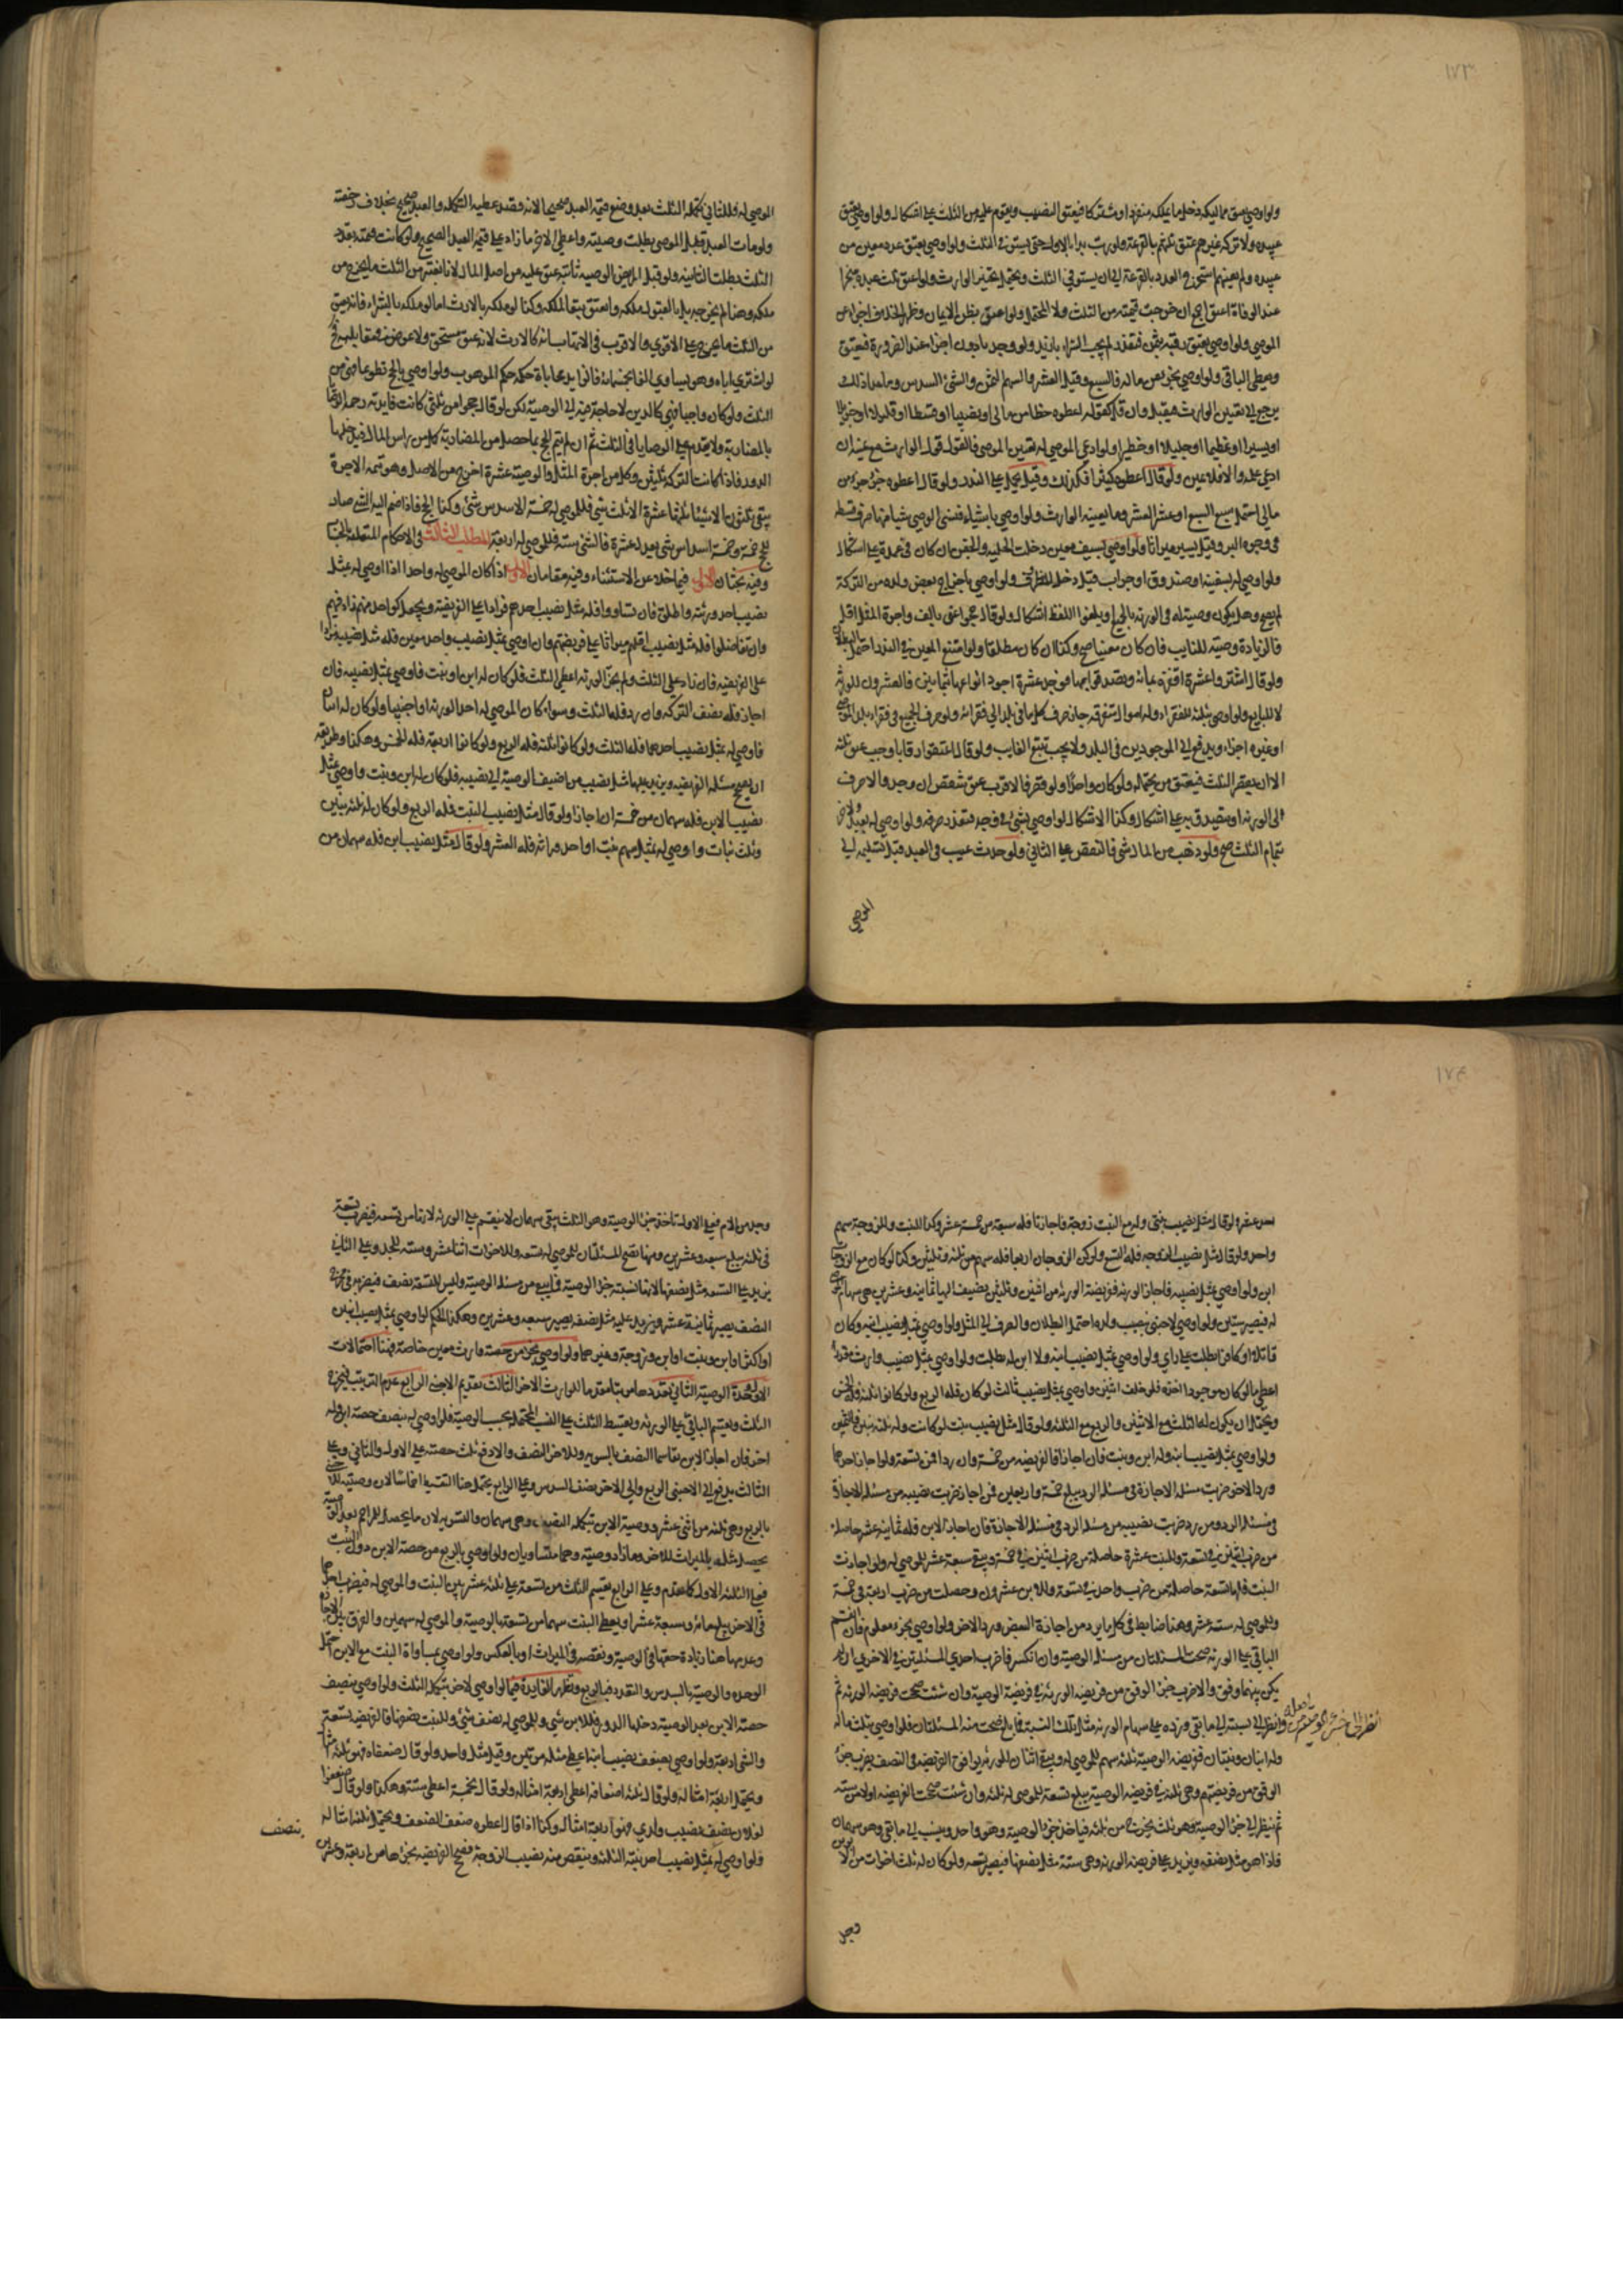 ١٧٣
ولو اوصى بعتق مماليكه دخل ما يملكه منفردا ومشتركا فيعتق النصيب ويقوم عليه من الثلث على اشكال ولو اوصى بعتق
عبيده ولا تركة غيرهم عتق ثلثهم بالقرعة ولو رتب بدا بالاول حتى يستوفى الثلث ولو اوصى بعتق عدد معين من
عبيده ولم يعينهم استخرج العدد بالقرعة الى ان يستوفي الثلث ويحتمل تخيير الوارث ولو اعتق ثلث عبده منجزا
عند الوفاة اعتق اجمع ان خرجت قيمته من الثلث والا المحتمل ولو اعتق بظن الايمان وظهر الخلاف اجزاء عن
الموصي ولو اوصى بعتق رقبة بثمن فتعذر لم يجب الشراء بازيد ولو وجد بادون اجزا عند الضرورة فيعتق
ويعطى الباقي ولو اوصى بجزء من ماله فالسبع وقيل العشر والسهم الثمن والشئ السدس وما عدا ذلك
يرجع الى تعيين الوارث فيقبل وان قل كقوله اعطوه حظا من مالى او نصيبا او قسطا او قليلا او جزيلا
او يسيرا او عظيما او جليلا او خطيرا ولو ادعى الموصى له تعيين الموصى فالقول قول الوارث مع يمينه ان
ادعى علمه والا فلا يمين ولو قال اعطوه كثيرا فكذلك وقيل يحمل على النذر ولو قال اعطوه جزء جزء من
مالى احتمل سبع السبع او عشر العشر وما يعينه الوارث ولو اوصى باشياء فنسى الوصى شيأ منها صرف قسطه
فى وجوه البر وقيل يصير ميراثا ولو اوصى بسيف معين دخلت الحلية والجفن ان كان فى غمده على اشكال
ولو اوصى له بسفينة او صندوق او جراب قيل دخل المظروف ولو اوصى باخراج بعض ولده من التركة
لم يصح وهل يكون وصيته له فى الورثة بالجميع او يلغوا اللفظ اشكال ولو قال حجوا عنى بالف واجرة المثل اقل
فالزيادة وصية للنايب فان كان معينا صح وكذا ان كان مطلقا ولو امتنع المعين فى الندب احتمل البطلان
ولو قال اشتروا عشرة اقفزة بمائة وتصدقوا بها فوجد عشرة اجود انواعها بثمانين فالعشرون للورثة
لا للبايع ولو اوصى بثلثه للفقراء وله اموال متفرقة جاز صرف كل ما فى بلد الى فقرائه ولو صرف الجميع فى فقراء بلد الموصى
او غيره اجزاء ويدفع الى الموجودين فى البلد ولا يجب تتبع الغايب ولو قال اعتقوا رقابا وجب عتق ثلثه
الا ان يقصر الثلث فيعتق من يحتمله ولو كان واحدا ولو قصر فالاقرب عتق شقص ان وجد والا صرف
الى الورثة او يتصدق به على اشكال وكذا الاشكال لو اوصى بشئ فى وجه فتعذر صرفه ولو اوصى له بعبد ولاخر
بتمام الثلث صح فلو ذهب من المال شئ فالنقص على الثاني ولو حدث عيب فى العبد قبل تسليمه الى
الموصي
الموصى له فللثاني تكملة الثلث بعد وضع قيمة العبد صحيحا لانه قصد عطية التكملة والعبد صحيح بخلاف رخصته
ولو مات العبد قبل الموصى بطلت وصيته واعطى الاخر ما زاد على قيمة العبد الصحيح ولو كانت قيمته بقدر
الثلث بطلت الثانية ولو قبل المريض الوصية ثانية عتق عليه من اصل المال لانا نعتبر من الثلث ما يخرج من
ملكه وهنا لم يخرجه بل بالقبول ملكه واعتق تبعا لملكه وكذا لو ملكه بالارث اما لو ملكه بالشراء فانه يعتق
من الثلث ما يخرج على الاقوى والاقرب فى الاتهاب انه كالارث لانه عتق مستحق ولا عوض فى مقابلته
لو اشترى اباه وهو يساوى الفا بخمسمائة فالزايد محاباة حكمه حكم الموهوب ولو اوصى بالحج تطوعا فهى من
الثلث ولو كان واجبا فهى كالدين لا حاجة فيه الى الوصية لكن لو قال حجوا من ثلثى كانت فايدته
بالمضاربة ولا يقدم على الوصايا فى الثلث ثم ان لم يتم الحج بما حصل من المضاربة كمل من راس المال فيدخلها
الدور فاذا كانت التركة ثلثين وكل من اجرة المثل والوصية عشرة اخرج من الاصل وهو تتمة الاجرة
يبقى ثلثون الا شيئا ثلثها عشرة الا ثلث شئ فللموصى له خمسة الا سدس شئ وكذا للحج فاذا ضم اليه الشئ صار
للحج خمسة وخمسة اسداس شئ يعدل عشرة فالشئ ستة فللموصى له اربعة المطلب الثالث فى الاحكام المتعلقة بالحساب
وفيه بحثان الاول فيما خلا عن الاستثناء وفيه مقامان الاول اذا كان الموصى له واحدا اذا اوصى له بمثل
نصيب احد ورثته واطلق فان تساووا فله مثل نصيب احدهم مزادا على الفريضة ويجعل كواحد منهم زاد فيهم
وان تفاضلوا فله مثل نصيب اقلهم ميراثا على فريضتهم وان اوصى بمثل نصيب واحد معين فله مثل نصيبه مزادا
على الفريضة فان زاد على الثلث ولم يجز الورثة اعطى الثلث فلو كان له ابن او بنت فاوصى بمثل نصيبه فان
اجاز فله نصف التركة وان رد فله الثلث وسواء كان الموصى له احد الورثة او اجنبيا ولو كان له ابنان
فاوصى له بمثل نصيب احدهما فله الثلث ولو كانوا ثلثة فله الربع ولو كانوا اربعة فله الخمس وهكذا وطريقه
ان تصحح مسئلة الفريضة وتزيد عليها مثل نصيب من اضيف الوصية الى نصيبه فلو كان له ابن وبنت واوصى بمثل
نصيب الابن فله سهمان من خمسة ان اجازا ولو قال مثل نصيب البنت فله الربع ولو كان له ثلثة بنين
وثلث بنات واوصى له بمثل سهم بنت او احد وراثه فله العشر ولو قال مثل نصيب ابن فله سهمان من
١٧٤
احد عشر ولو قال مثل نصيب بنتى وله مع البنت زوجة فاجازتا فله سبعة من خمسة عشر وكذا للبنت وللزوجة سهم
واحد ولو قال مثل نصيب الزوجة فله التسع ولو كن الزوجات اربعا فله سهم من ثلثة وثلثين وكذا لو كان مع الزوجات
ابن ولو اوصى بمثل نصيبه فاجاز الورثة ففريضة الورثة من اثنين وثلثين يضيف اليها ثمانية وعشرين هى سهام الموصى
له فيصير ستين ولو اوصى لاجنبى بنصيب ولده احتمل البطلان والصرف الى المثل ولو اوصى بمثل نصيب ابنه وكان
قاتلا او كافرا بطلت على راى ولو اوصى بمثل نصيب ابنه ولا ابن له بطلت ولو اوصى بمثل نصيب وارث مقدر
اعطى ما لو كان موجودا اخذه فلو خلف اثنين واوصى بمثل نصيب ثالث لو كان فله الربع ولو كانوا ثلثة فله الخمس
ويحتمل ان يكون له الثلث مع الاثنين والربع مع الثلثة ولو قال مثل نصيب بنت لو كانت وله ثلثة بنين فالثمن
ولو اوصى بمثل نصيب ابنه وله ابن وبنت فان اجازا فالفريضة من خمسة وان ردا فمن تسعة ولو اجاز احدهما
ورد الاخر ضربت مسئلة الاجازة فى مسئلة الرد يبلغ خمسة واربعين فمن اجاز ضربت نصيبه من مسئلة الاجازة
فى مسئلة الرد ومن رد ضربت نصيبه من مسئلة الرد فى مسئلة الاجازة فان اجاز الابن فله ثمانية عشر حاصلة
من ضرب اثنين فى تسعة وللبنت عشرة حاصلة من ضرب اثنين فى خمسة ويبقى سبعة عشر للموصى له ولو اجازت
البنت فلها تسعة حاصلة من ضرب واحد فى تسعة وللابن عشرون وحصلت من ضرب اربعة فى خمسة
وللموصى له ستة عشر وهذا ضابط فى كل ما يرد من اجازة البعض ورد الاخر ولو اوصى بجزء معلوم فان انقسم
الباقى على الورثة صحت المسئلتان من مسئلة الوصية وان انكسر فاضرب احدى المسئلتين فى الاخرى ان لم
يكن بينهما وفق والا ضرب جزء الوفق من فريضة الورثة فى فريضة الوصية وان شئت صححت فريضة الورثة ثم
وانظر الى نسبته الى ما بقى وزده على سهام الورثة مثل تلك النسبة فما بلغ صحت منه المسئلتان فلو اوصى بثلث ماله
وله ابنان وبنتان ففريضة الوصية ثلثة سهم للموصى له ويبقى اثنان للورثة يوافق الفريضة فى النصف يضرب جزء
الوفق من فريضتهم وهى ثلثة فى فريضة الوصية يبلغ تسعة للموصى له ثلثة وان شئت صححت الفريضة اولا من ستة
ثم ينظر الى جزء الوصية وهو ثلث يخرج من ثلثة فياخذ جزء الوصية وهو واحد وينسب الى ما بقى وهو سهمان
فاذا هو مثل نصفه ويزيد على فريضة الورثة وهى ستة مثل نصفها فيصير تسعة ولو كان له ثلث اخوات من الابوين
وجد
وجد من الام فعلى الاول تاخذ جزء الوصية وهو الثلث يبقى سهمان لا ينقسم على الورثة لانها من تسعة فيضرب تسعة
فى ثلثة يبلغ سبعة وعشرين ومنها تصح المسئلتان للموصى له تسعة وللاخوات اثنا عشر وستة للجد وعلى الثاني
يزيد على التسعة مثل نصفها لانها نسبة جزء الوصية فما يبقى من مسئلة الوصية وليس للتسعة نصف فيضرب فى مخرج
النصف يصير ثمانية عشر ويزيد عليه مثل نصفه يصير سبعة وعشرين وهكذا الحكم لو اوصى بمثل نصيب ابنين
او اكثر او ابن وبنت او ابن وزوجة وغيرهما ولو اوصى بجزء من حصة وارث معين خاصة فهنا احتمالات
الثلث ويقسم الباقى على الورثة ويقسط الثلث على النسب المحتملة بحسب الوصية فلو اوصى له بنصف حصة ابن وله
اخر فان اجاز الابن تقاسما النصف بالسوية وللاخر النصف والا فثلث حصته على الاول والثاني وعلى
الثالث يدفع الى الاجنبى الربع والى الاخر نصف السدس وعلى الرابع يحتمل هذا التقسيط
يحصل مثله بالميراث للاخر وما زاد وصية وهما متساويان ولو اوصى بالربع من حصة الابن دون البنت
فعلى الثلثة الاول كما تقدم وعلى الرابع يقسم الثلث من تسعة على ثلثة عشر بين البنت والموصى له فيضرب احدهما
فى الاخر يبلغ مائة وسبعة عشر او يعطى البنت سهما من تسعة بالوصية والموصى له سهمين والفرق
وعدمها هنا زيادة حقها فى الوصية ونقصه فى الميراث او بالعكس ولو اوصى بمساواة البنت مع الابن احتمل
الوحدة والوصية بالسدس والتعدد فبالربع وتظهر الفايدة فيما لو اوصى لاخر بتكملة الثلث ولو اوصى بنصف
حصة الابن بعد الوصية دخلها الدور فللابن شئ وللموصى له نصف شئ وللبنت نصفها فالفريضة تسعة
والشئ اربعة ولو اوصى بضعف نصيب ابنه اعطى مثله مرتين وقيل مثل واحد ولو قال ضعفاه فهو ثلثة امثاله
ويحتمل اربعة امثاله ولو قال ثلثة اضعافه اعطى اربعة امثاله ولو قال خمسة اعطى ستة وهكذا ولو قال ضعفوا
لفلان ضعف نصيب ولدى فهو اربعة امثاله وكذا اذا قال اعطوه ضعف الضعف ويحتمل ثلثة امثاله
ولو اوصى له بمثل نصيب احد بنيه الثلثة وينقص منه نصيب الزوجة فصح الفريضة
بنصف